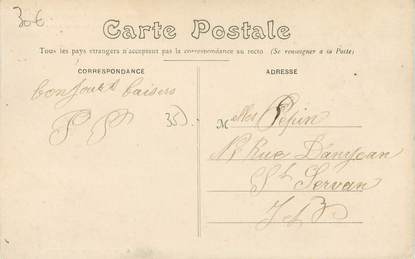 30€
Carte Postale
Tous les pays étrangers n'acceptent pas la correspondance au recto (Se renseigner à la Poste)
CORRESPONDANCE
Bonjour & Baisers
P P
35)
ADRESSE
M elles Pépin
Rue Danycan
St Servan
I et V